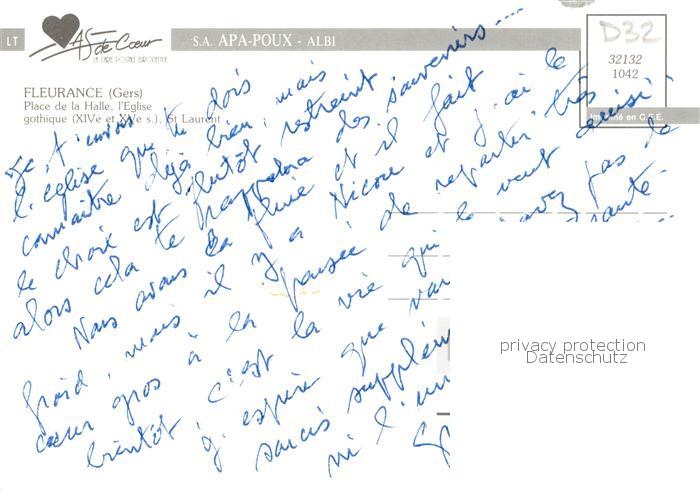 LT
AS de Cœur
LA CARTE POSTALE EUROPÉENNE
S.A. APA-POUX - ALBI
D32
32132
1042
Imprimé en C.E.E.
FLEURANCE (Gers)
Place de la Halle, l'Eglise
gothique (XIVe et XVe s.). St Laurent
Je t'envoie
l'église que tu dois
connaître déjà bien, mais
le choix est plutôt restreint
alors cela te rappelera des souvenirs....
Nous avons la pluie et il fait
froid, mais il y a Nicole et j'ai le
cœur gros à la pensée de repartir très
bientôt c'est la vie qui le veut ainsi
j'espère que vous n'avez pas de
soucis supplém santé.
ni l'un
privacy protection
Datenschutz